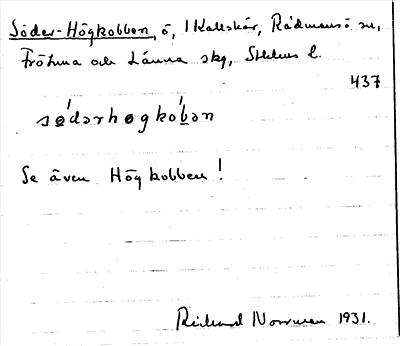 Söder-Högkobben, ö, i Kallskär, Rådmansö sn,
Fröhuna och Länna skg, Sthlms l.
437
sø'dərhøgkob'ən
Se även Högkobben!
Rickard Norrman 1931.